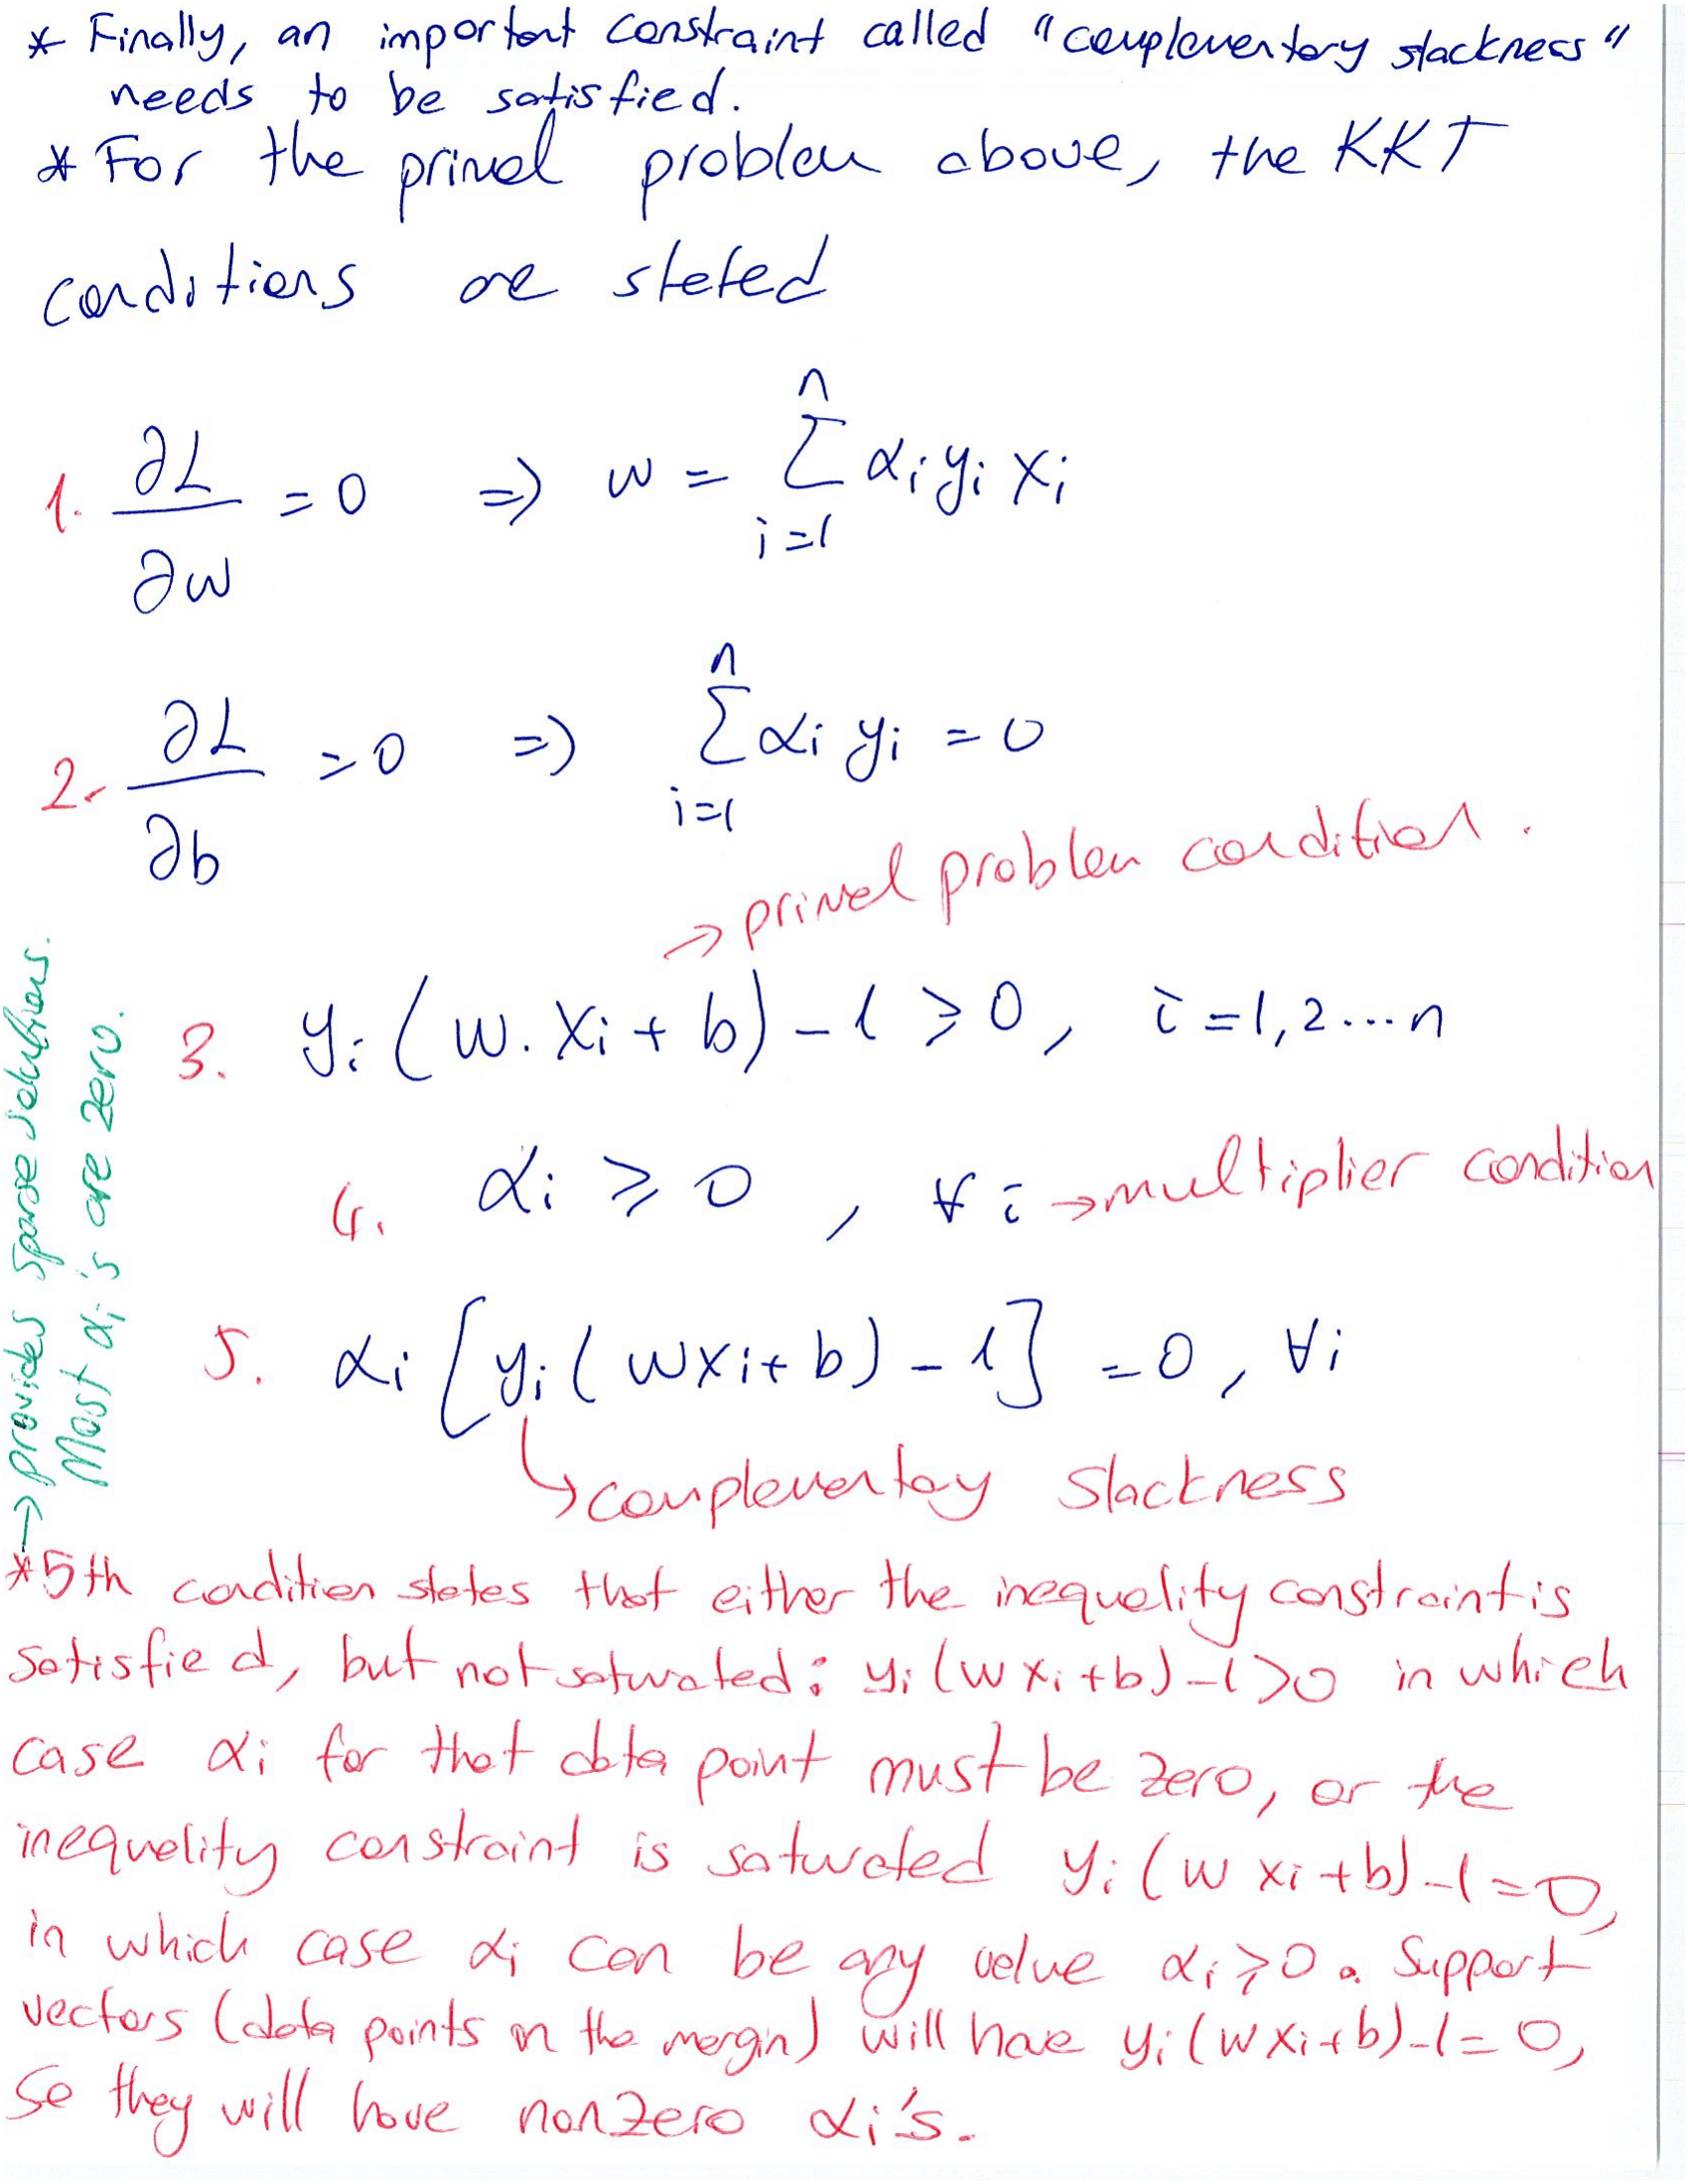 * Finally, an important constraint called "complementary slackness"
needs to be satisfied.
* For the primal problem above, the KKT
conditions are stated
1. ∂L/∂w = 0 ⇒ w = Σ_{i=1}^{n} αi yi xi
2. ∂L/∂b = 0 ⇒ Σ_{i=1}^{n} αi yi = 0
→ primal problem condition.
3. yi (w. xi + b) - 1 ≥ 0, i = 1, 2 ... n
4. αi ≥ 0 , ∀ i → multiplier condition
5. αi [yi ( wxi + b) - 1] = 0, ∀i
↳ complementary slackness
→ provides sparse solutions.
Most αi's are zero.
*5th condition states that either the inequality constraint is
satisfied, but not saturated: yi (w xi + b) - 1 > 0 in which
case αi for that data point must be zero, or the
inequality constraint is saturated yi (w xi + b) - 1 = 0,
in which case αi can be any value αi ≥ 0. Support
vectors (data points on the margin) will have yi (w xi + b) - 1 = 0,
so they will have nonzero αi's.